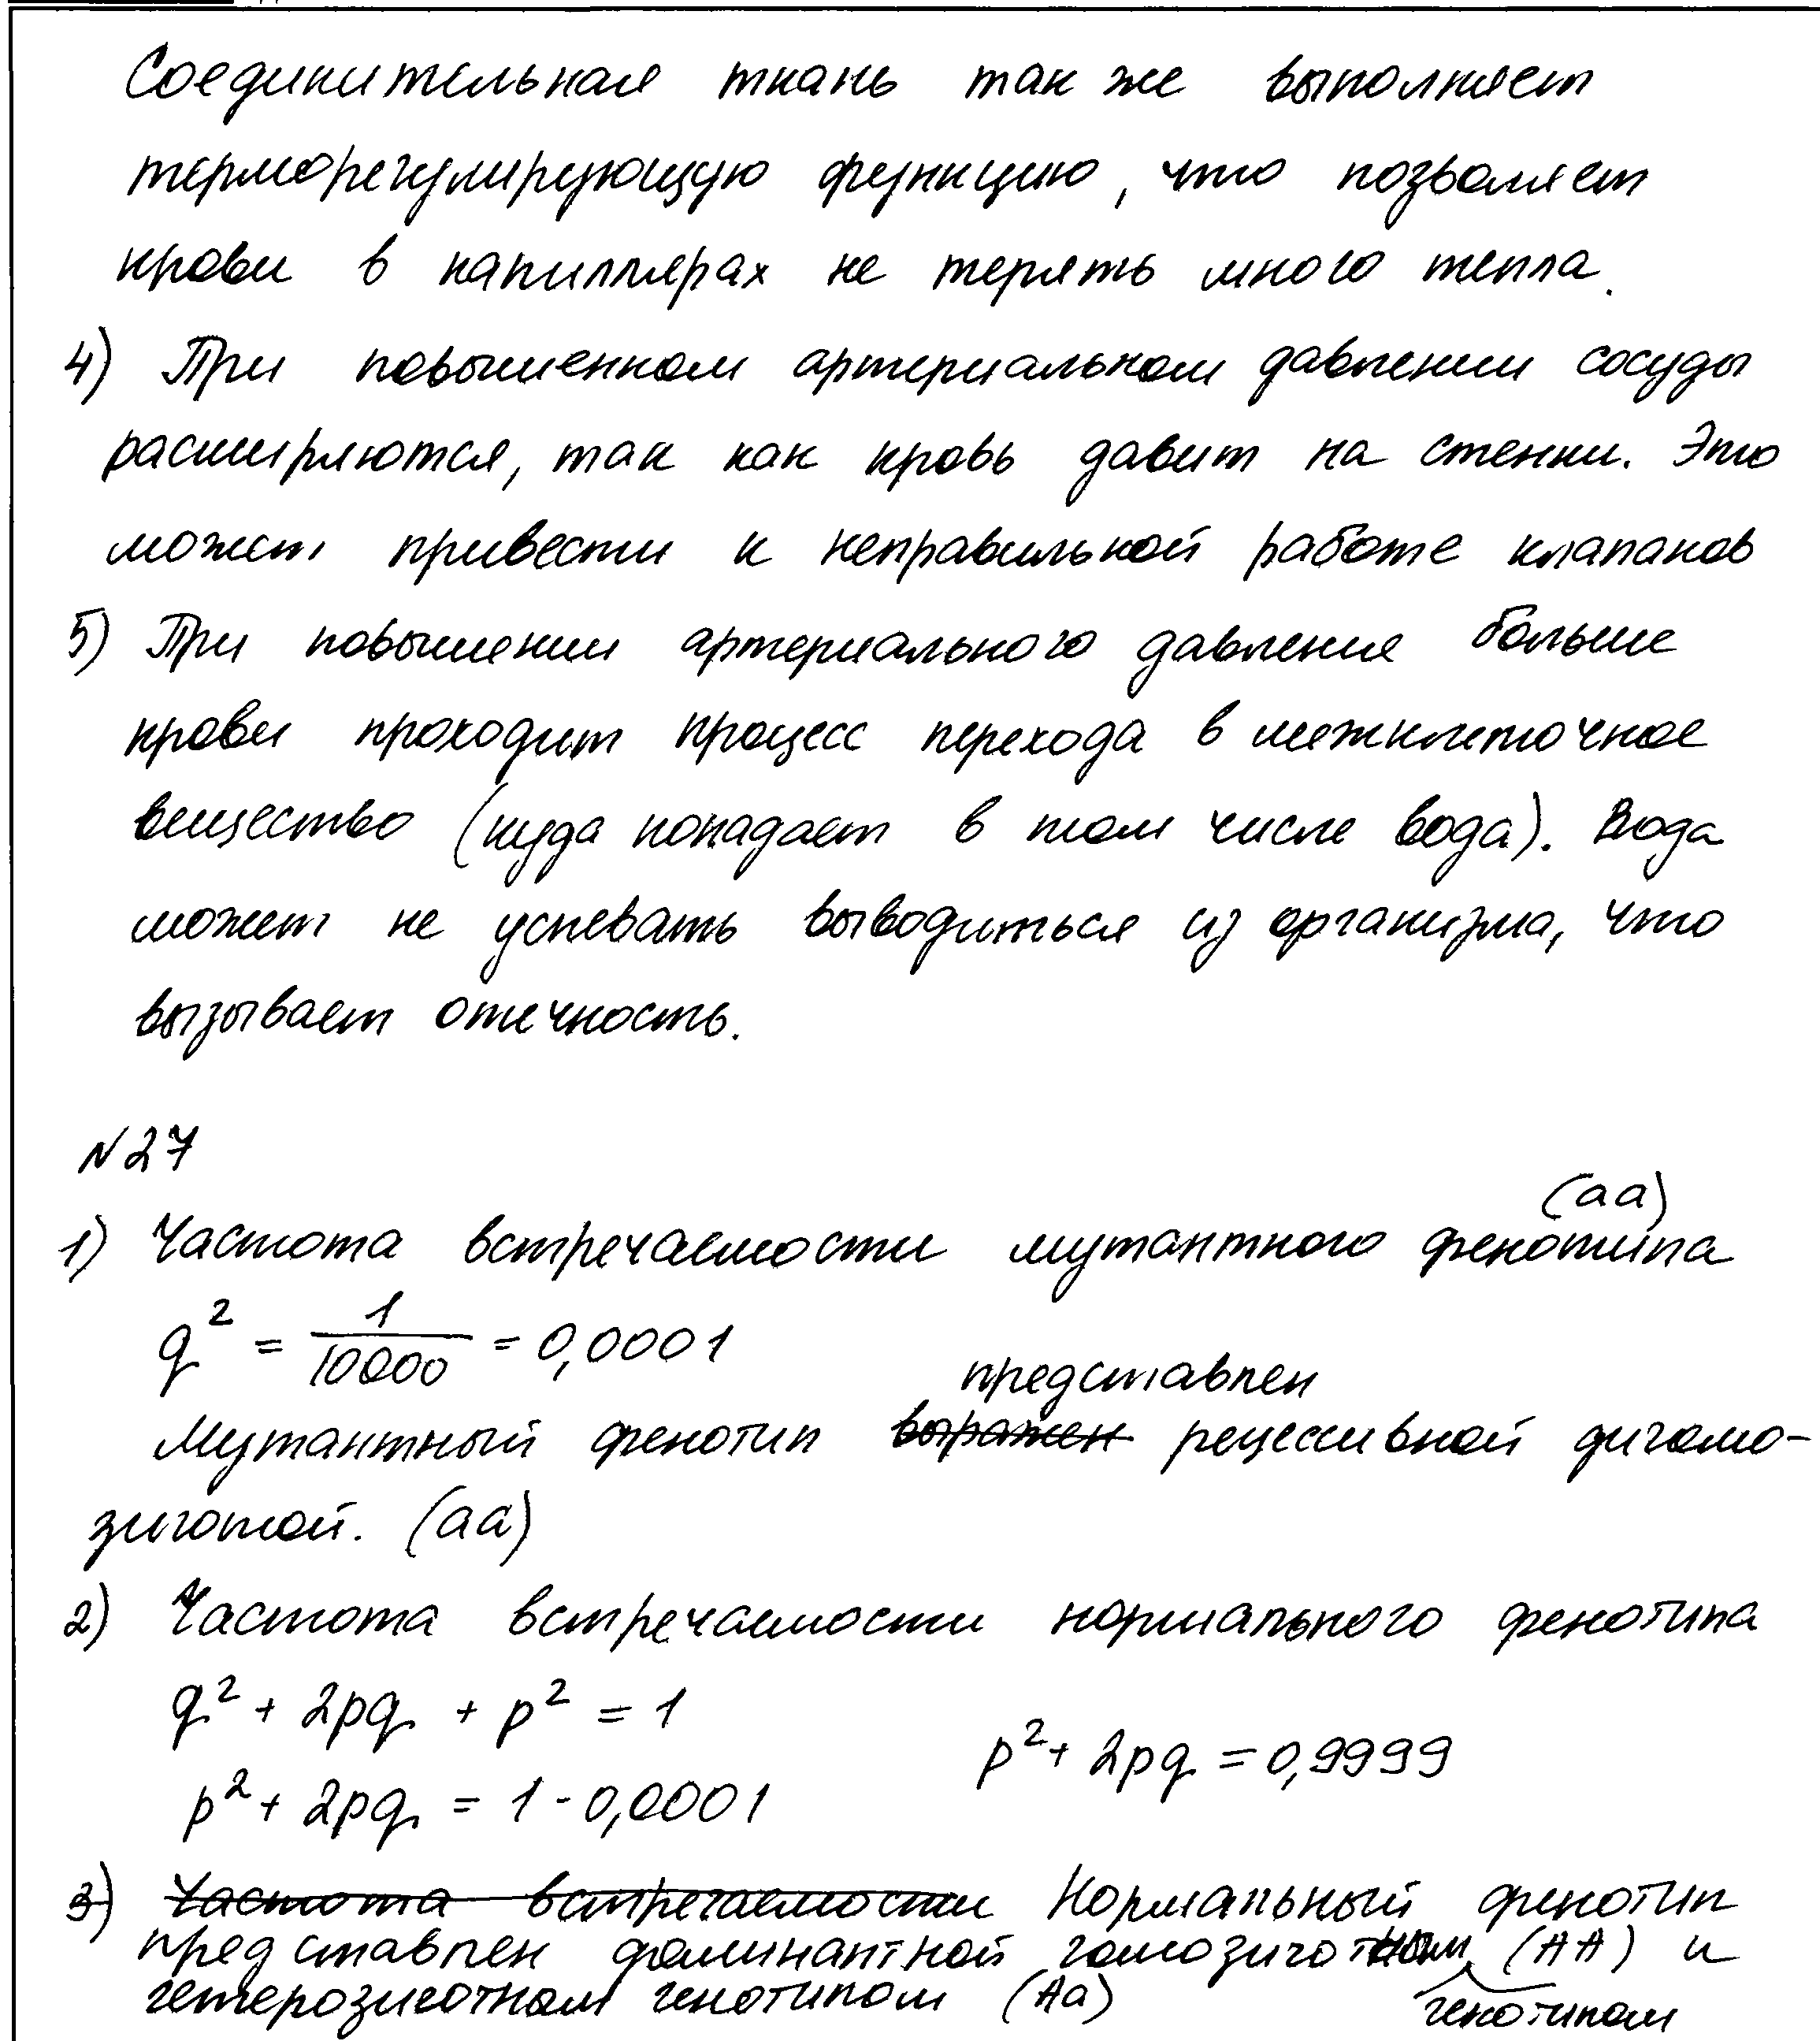 Соединительная ткань так же выполняет
терморегулирующую функцию, что позволяет
крови в капиллярах не терять много тепла.
4) При повышенном артериальном давлении сосуды
расширяются, так как кровь давит на стенки. Это
может привести к неправильной работе клапанов
5) При повышении артериального давления больше
крови проходит процесс перехода в межклеточное
вещество (куда попадает в том числе вода). Вода
может не успевать выводиться из организма, что
вызывает отечность.
№27
(aa)
1) Частота встречаемости мутантного фенотипа
q² = 1/10000 = 0,0001
представлен
Мутантный фенотип выражен рецессивной дигомо-
зиготой. (aa)
2) Частота встречаемости нормального фенотипа
q² + 2pq + p² = 1
p² + 2pq = 0,9999
p² + 2pq = 1 - 0,0001
3) Частота встречаемости Нормальный фенотип
представлен доминантной гомозиготным (AA) и
гетерозиготном генотипом (Aa) генотипом